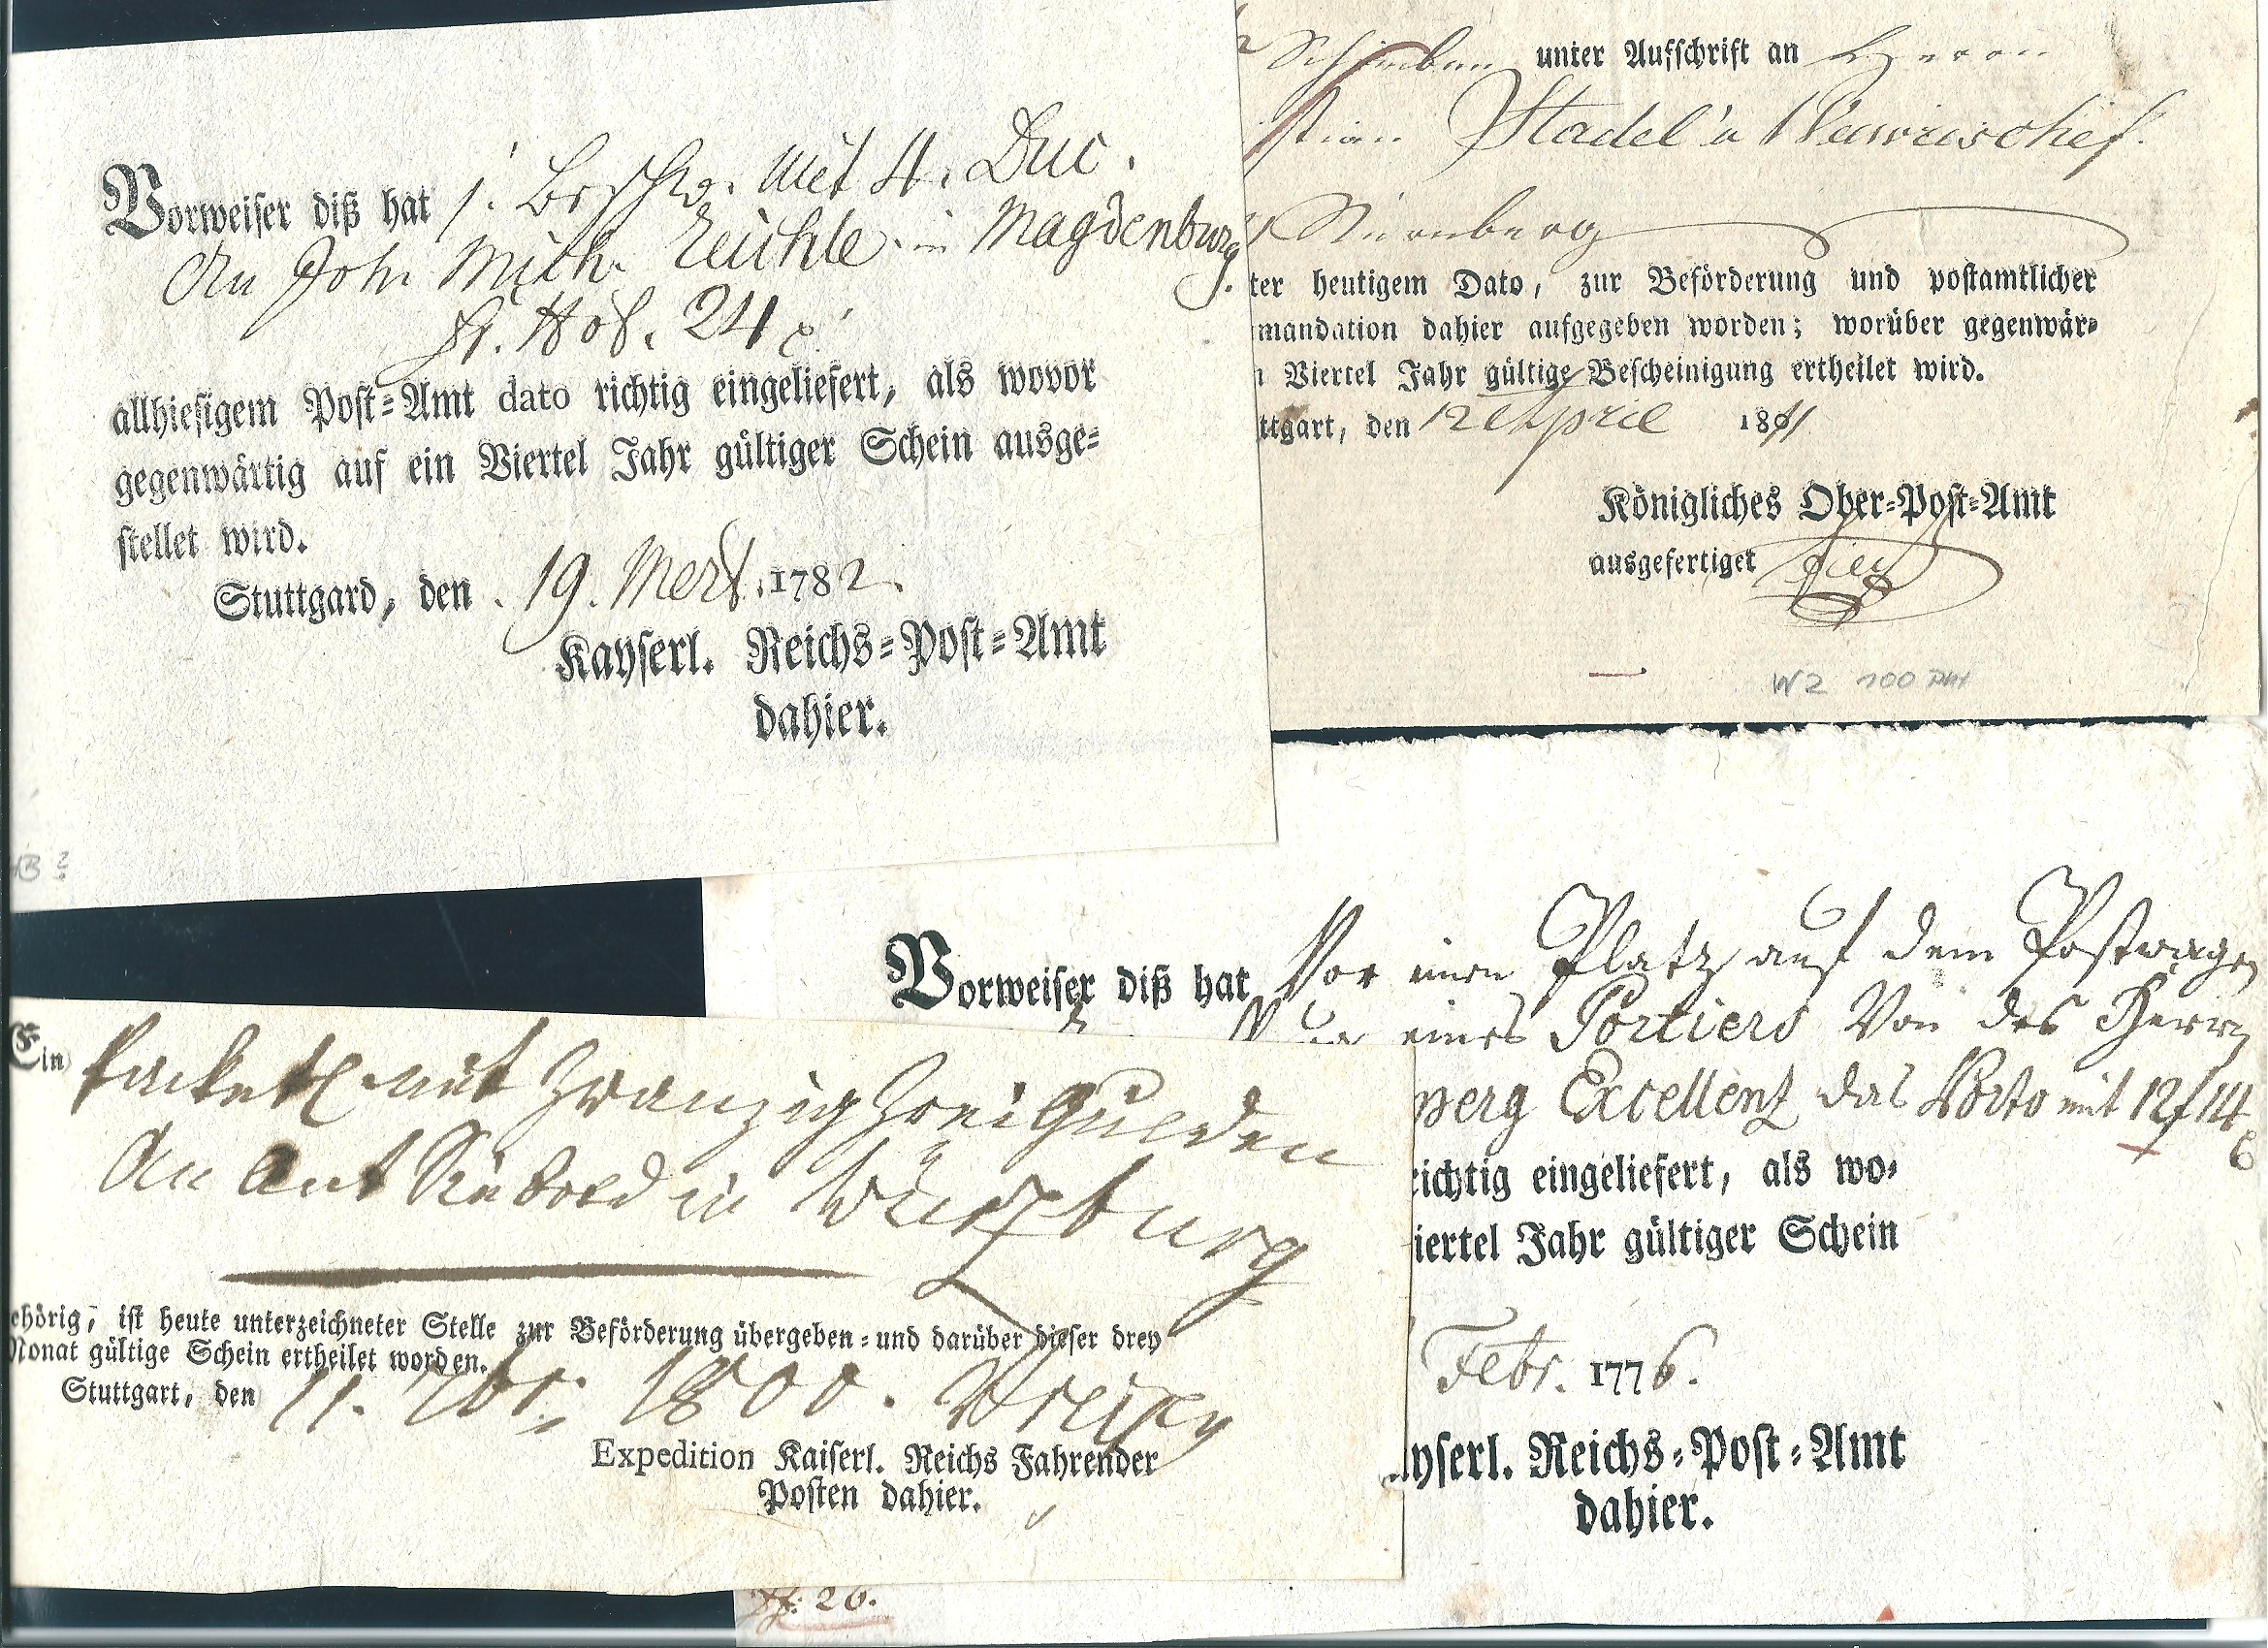 Vorweiser diß hat 1. Mit 4. Duc.
An Joh. Mich. Reichle in Magdenburg
fr. Hof. 24 x
allhiesigem Post-Amt dato richtig eingeliefert, als wovor
gegenwärtig auf ein Viertel Jahr gültiger Schein ausge-
stellet wird.
Stuttgard, den 19. Merz. 1782.
Kayserl. Reichs-Post-Amt
dahier.
unter Aufschrift an Herrn
Stadel
Nürnberg
ter heutigem Dato, zur Beförderung und postamtlicher
mandation dahier aufgegeben worden; worüber gegenwär-
Viertel Jahr gültige Bescheinigung ertheilet wird.
ttgart, den 12 April 1811
Königliches Ober-Post-Amt
ausgefertiget
W2 100 DM
Vorweiser diß hat Vor einen Platz auf dem Postwagen
eines Portiers Von des Herrn
berg Excellenz das Porto mit 12 f 14 x
richtig eingeliefert, als wo-
iertel Jahr gültiger Schein
Febr. 1776.
yserl. Reichs-Post-Amt
dahier.
26.
Ein Packetl mit Zwanzig Zwei Gulden
An Ant Siebold in Würzburg
ehörig, ist heute unterzeichneter Stelle zur Beförderung übergeben - und darüber dieser drey
Monat gültige Schein ertheilet worden.
Stuttgart, den 11. 7br. 1800.
Expedition Kaiserl. Reichs Fahrender
Posten dahier.